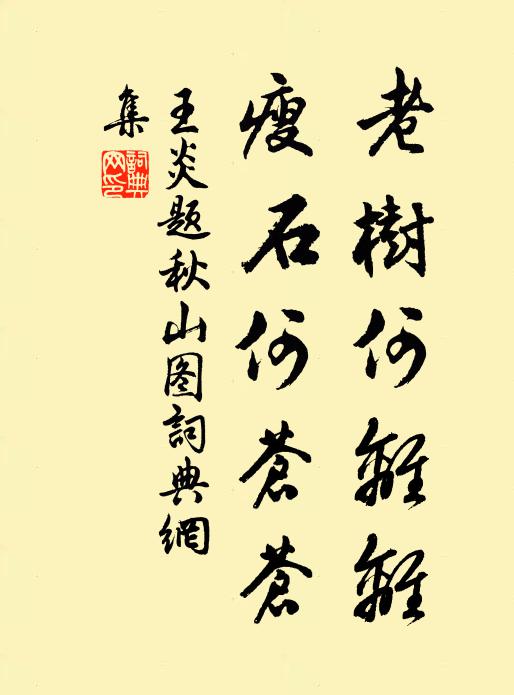 老樹何離離
瘦石何蒼蒼
王炎題秋山图詞典網
集
詞典網印